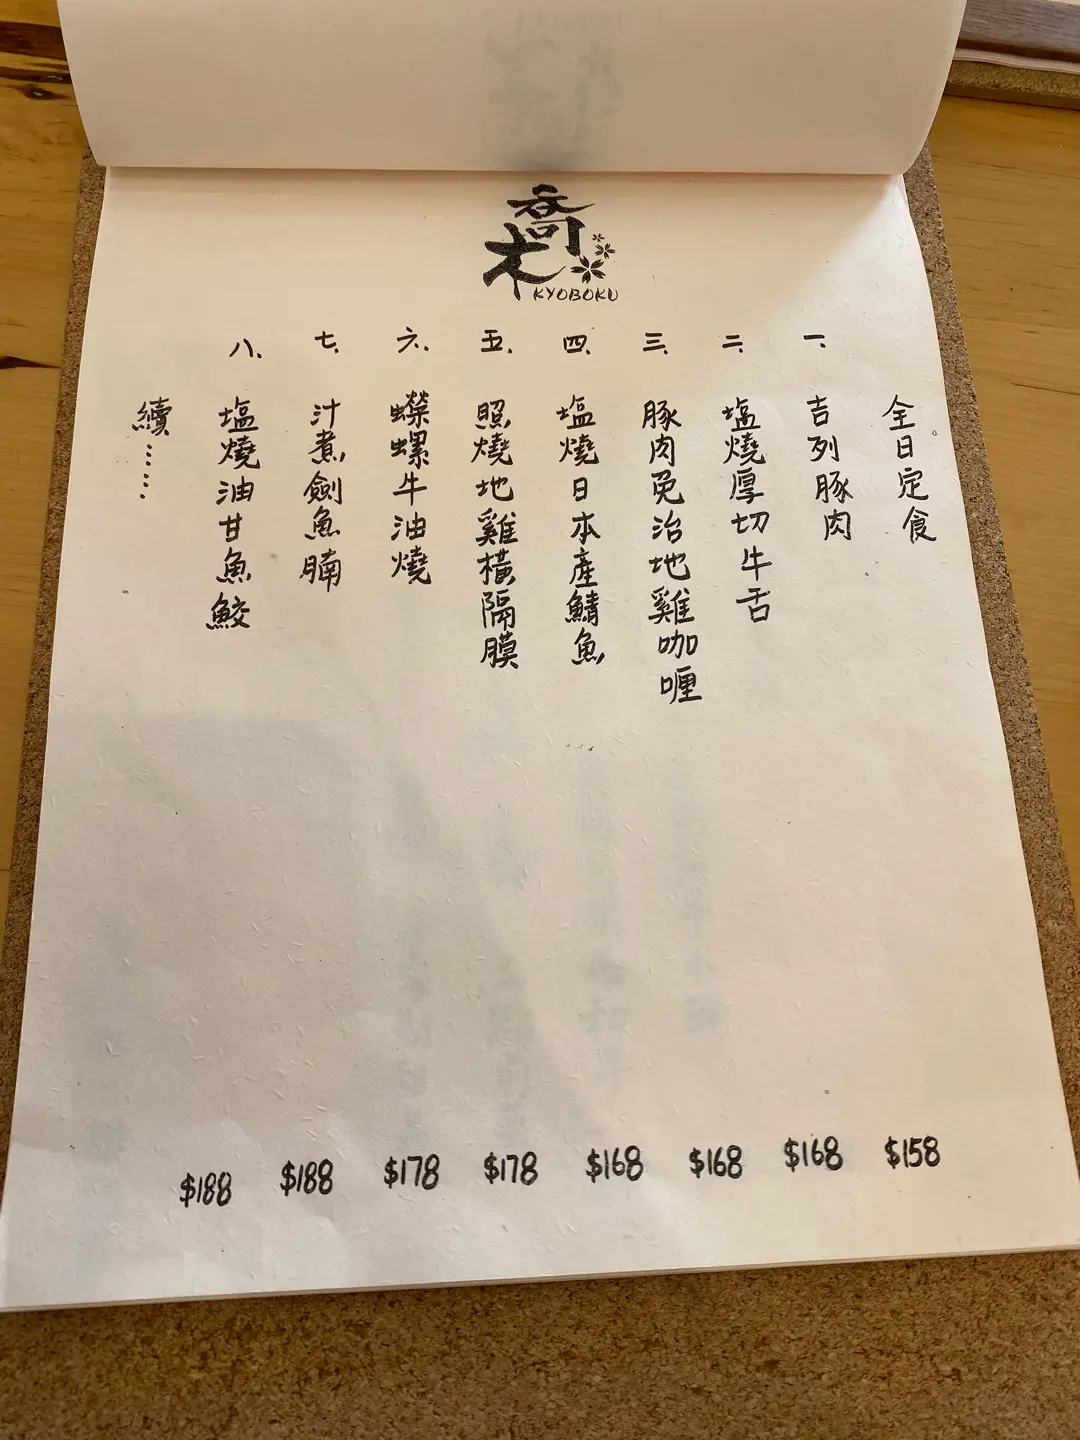 喬木
KYOBOKU
全日定食
一、吉列豚肉 $158
二、塩燒厚切牛舌 $168
三、豚肉免治地雞咖喱 $168
四、塩燒日本產鯖魚 $168
五、照燒地雞橫隔膜 $178
六、蠑螺牛油燒 $178
七、汁煮劍魚腩 $188
八、塩燒油甘魚鮫 $188
續⋯⋯